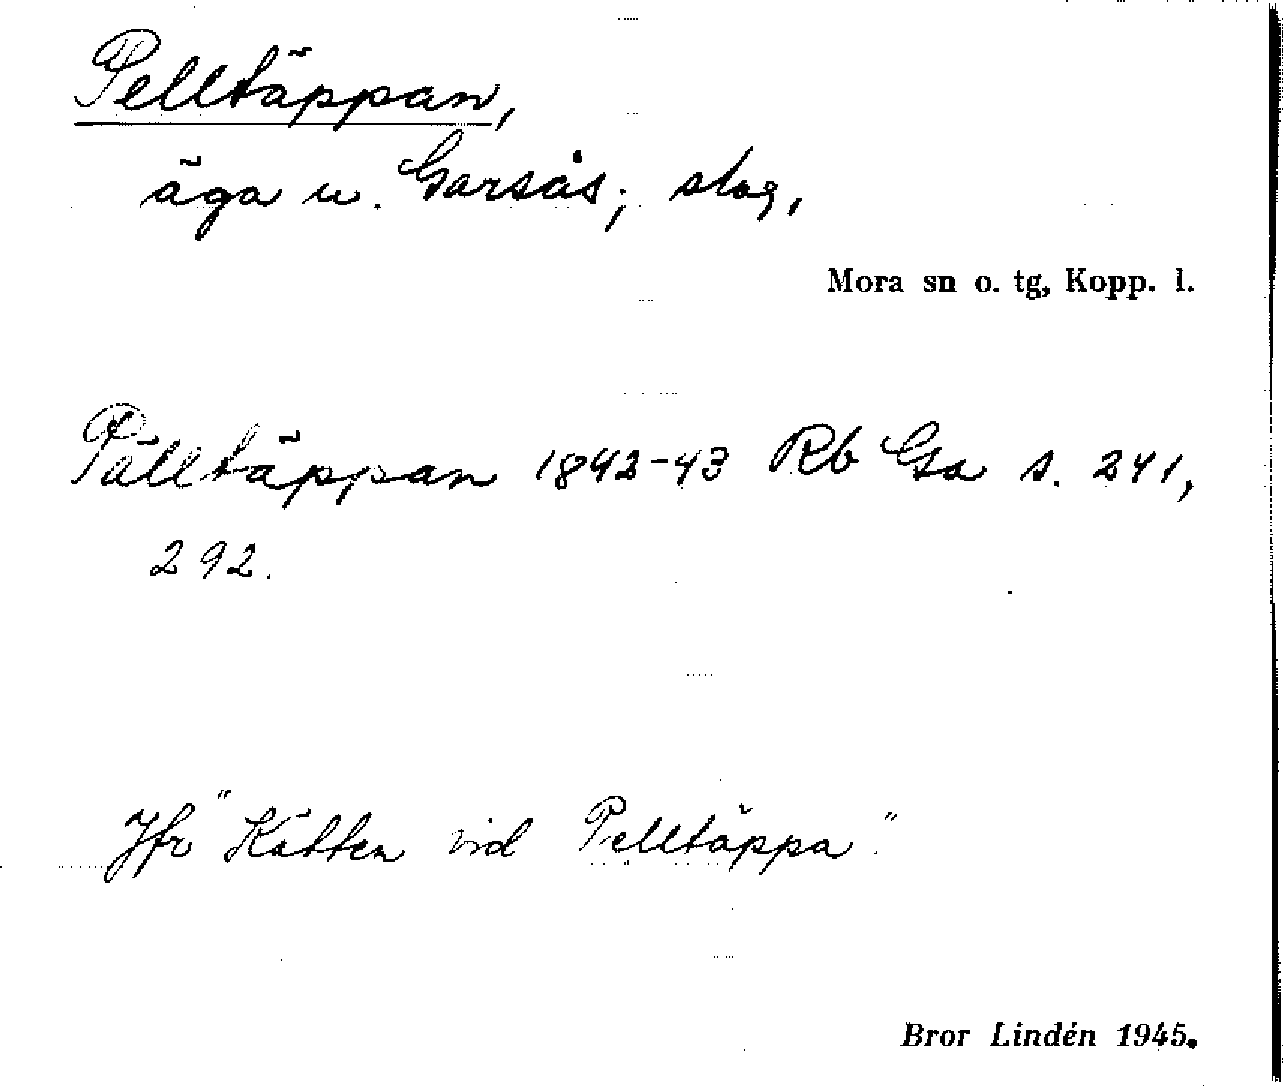 Pelltäppan,
äga u. Garsås; skog,
Mora sn o. tg, Kopp. l.
Pälltäppan 1842-43 Rb Ga s. 241,
292.
Jfr "Kätten vid Pelltäppa".
Bror Lindén 1945.